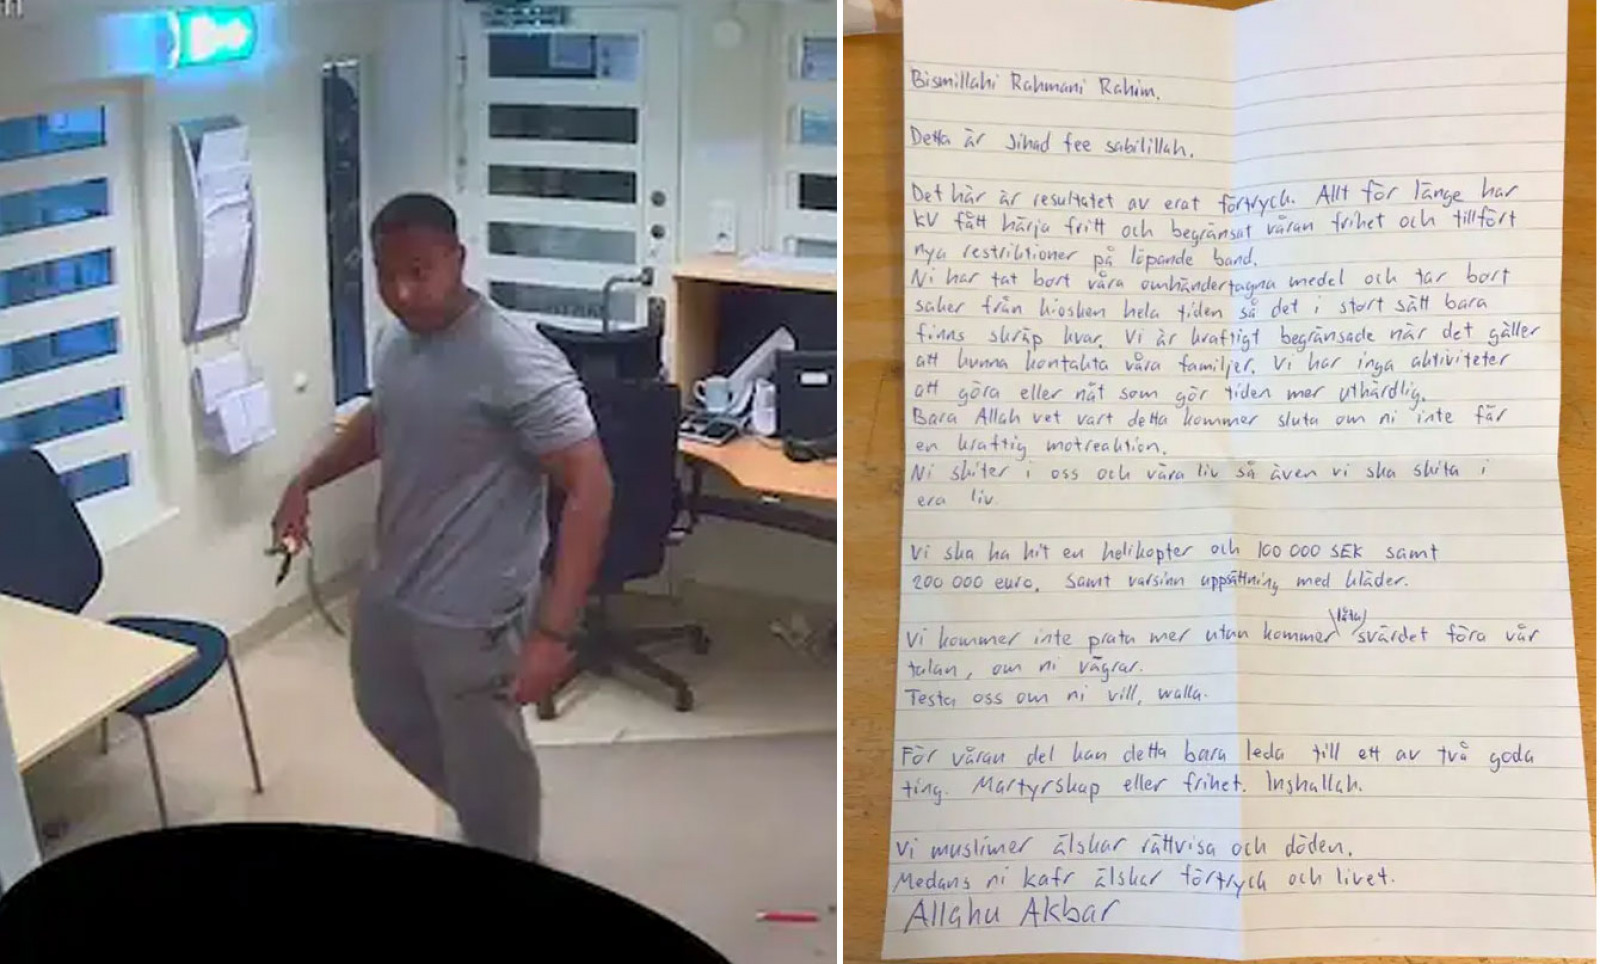 Bismillahi Rahmani Rahim.
Detta är Jihad fee sabilillah.
Det här är resultatet av erat förtryck. Allt för länge har
KV fått härja fritt och begränsat våran frihet och tillfört
nya restriktioner på löpande band.
Ni har tat bort våra omhändertagna medel och tar bort
saker från kiosken hela tiden så det i stort sätt bara
finns skräp kvar. Vi är kraftigt begränsade när det gäller
att kunna kontakta våra familjer. Vi har inga aktiviteter
att göra eller nåt som gör tiden mer uthärdlig.
Bara Allah vet vart detta kommer sluta om ni inte får
en kraftig motreaktion.
Ni skiter i oss och våra liv så även vi ska skita i
era liv.
Vi ska ha hit en helikopter och 100 000 SEK samt
200 000 euro. Samt varsinn uppsättning med kläder.
Vi kommer inte prata mer utan kommer låta svärdet föra vår
talan, om ni vägrar.
Testa oss om ni vill, walla.
För våran del kan detta bara leda till ett av två goda
ting. Martyrskap eller frihet. Inshallah.
Vi muslimer älskar rättvisa och döden.
Medans ni kafr älskar förtryck och livet.
Allahu Akbar